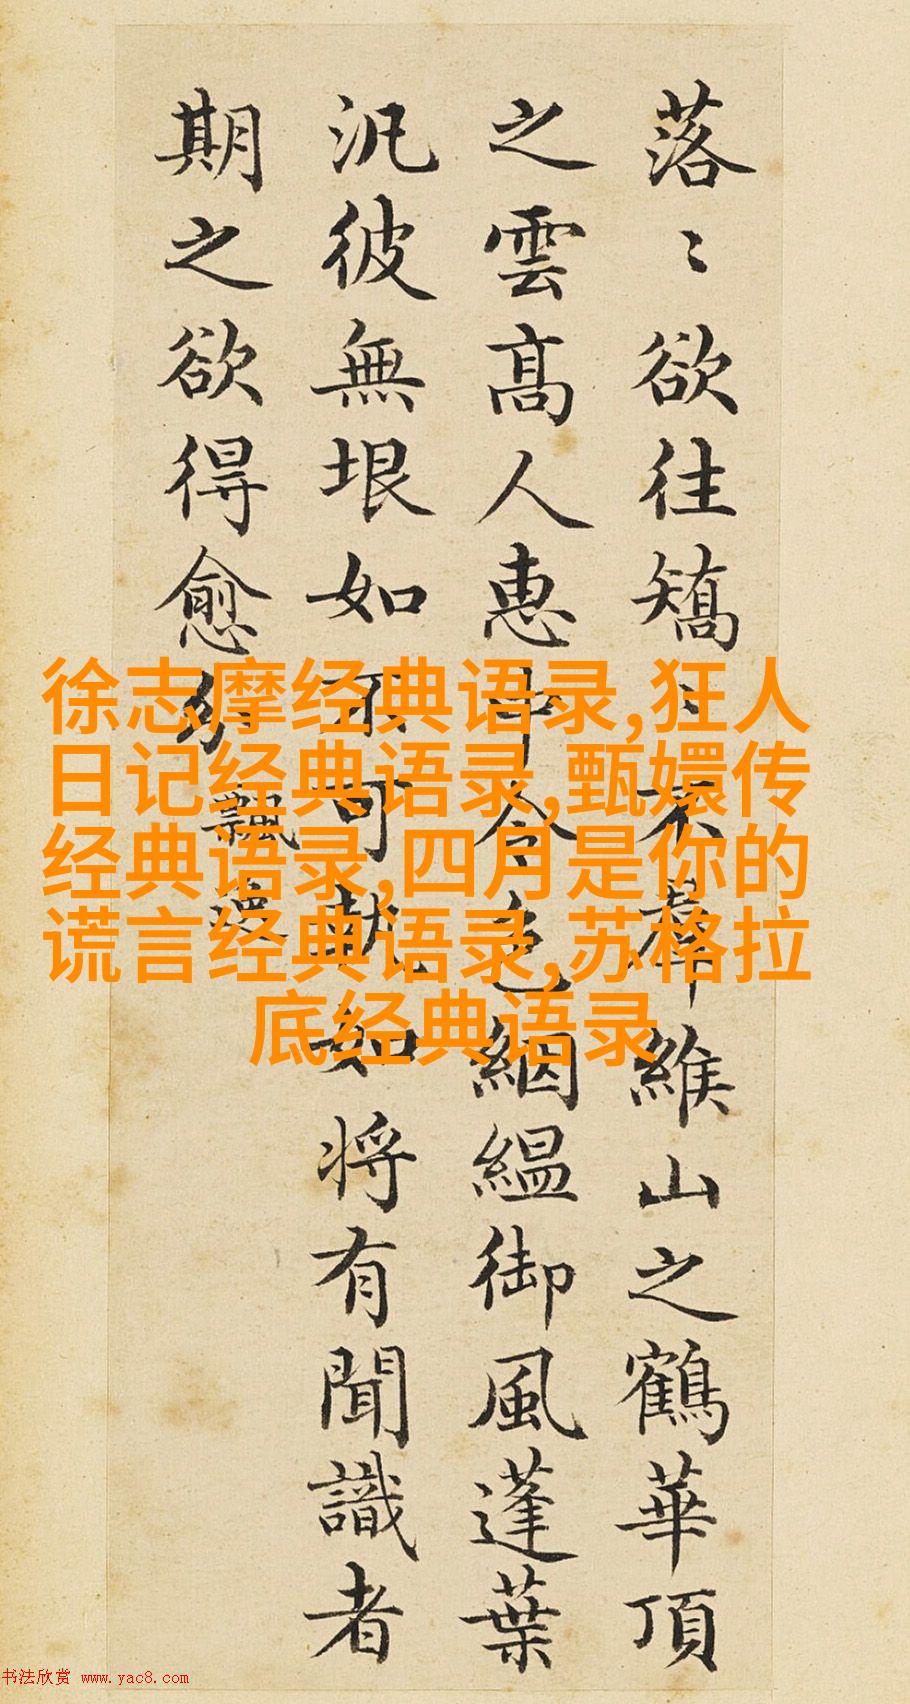 落〻欲往矯〻不羣緱山之鶴華頂
之雲高人惠中令色絪緼御風蓬葉
汎彼無垠如不可執如將有聞識者
期之欲得愈
飄
徐志摩经典语录,狂人
日记经典语录,甄嬛传
经典语录,四月是你的
谎言经典语录,苏格拉
底经典语录
书法欣赏 www.yac8.com